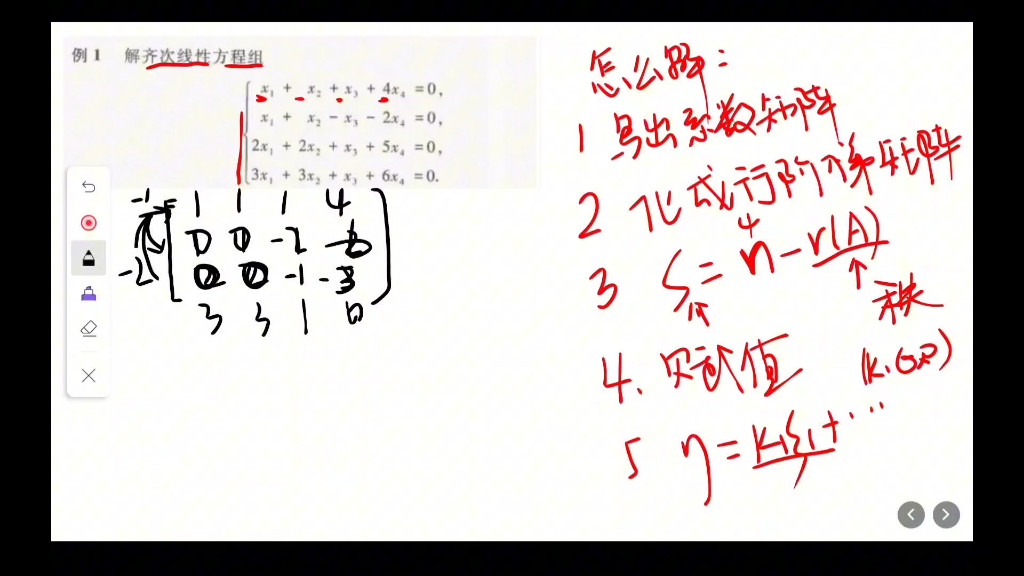 例1 解齐次线性方程组
x₁ + x₂ + x₃ + 4x₄ = 0,
x₁ + x₂ - x₃ - 2x₄ = 0,
2x₁ + 2x₂ + x₃ + 5x₄ = 0,
3x₁ + 3x₂ + x₃ + 6x₄ = 0.
-1 1 1 1 4
0 0 -2 -6
-2 0 0 -1 -3
3 3 1 6
怎么解:
1 写出系数矩阵
2 化成行阶梯矩阵
4
3 S = n - r(A)
秩
4. 赋值
5 η = k₁ξ₁ + ...